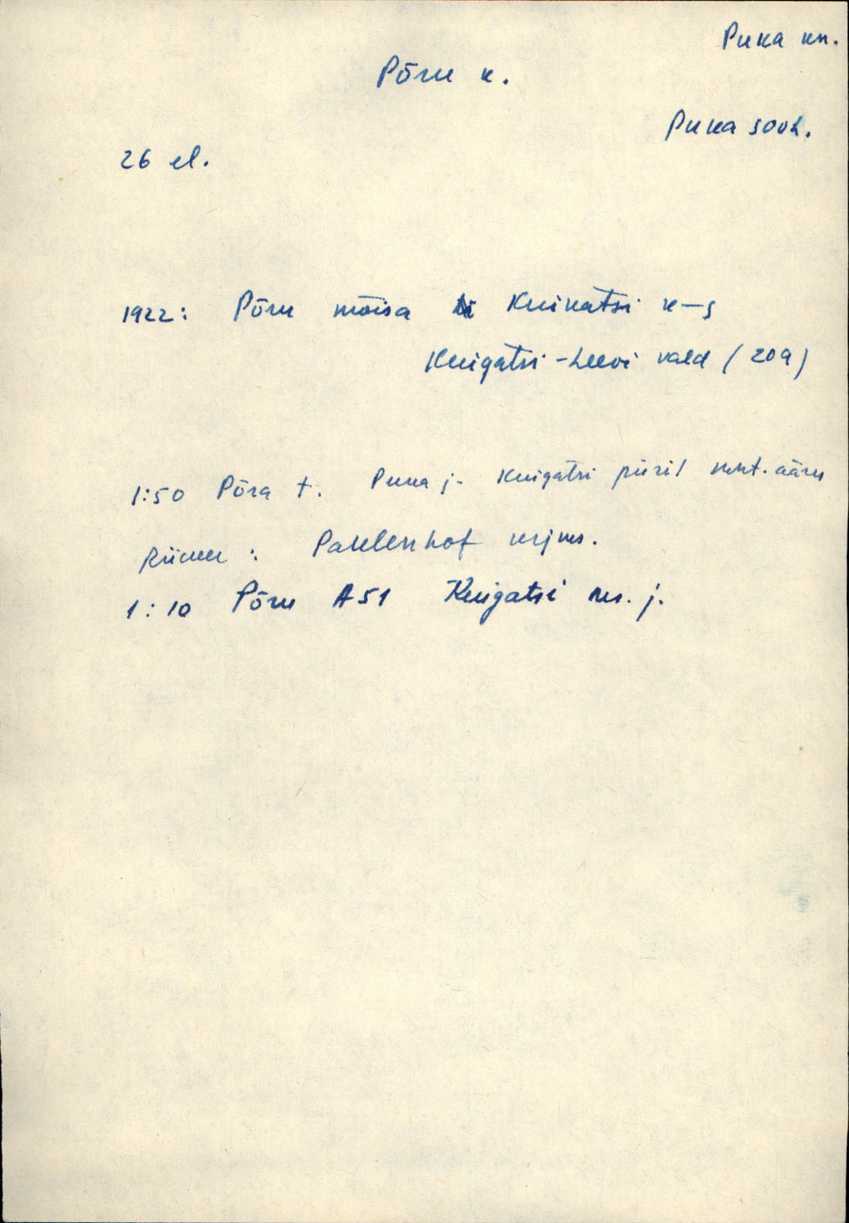 Puka kn.
Põru k.
Puka sovh.
26 el.
1922: Põru mõisa Kuikatsi k-s
Kuigatsi-Leevi vald (209)
1:50 Põra t. Puka j. Kuigatsi piiril mnt. ääres
Rücker: Pastellenhof
1:10 Põru A51 Kuigatsi j.